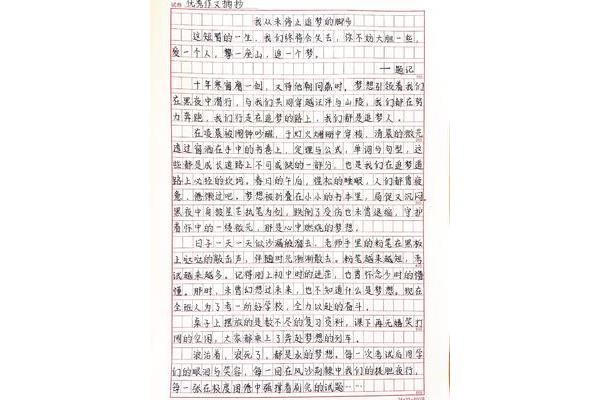 试卷 优秀作文摘抄
我从未停止追梦的脚步
这短暂的一生，我们终将会失去，你不妨大胆一些，
爱一个人，攀一座山，追一个梦。
——题记
十年寒窗磨一剑，又待他朝问鼎时。梦想引领着我们
在黑夜中潜行，与我们共同穿越汪洋与山陵，我们都在努
力奔跑，我们行走在追梦的路上，我们都是追梦人。
在凌晨被闹钟吵醒，于灯火阑珊中穿梭，清晨的微光
透过窗洒在手中的书卷上，定理与公式，单词与句型，这
些都是成长道路上不可或缺的一部分，也是我们在追梦道
路上必经的坎坷。春日的午后，惺忪的睡眼，人们都曾疲
惫，倦懒过吧。梦想被折叠在小小的书本里，局促又沉闷。
黑夜中身披星芒执笔为剑，跌倒了受伤也未曾退缩，守护
着怀中的一缕微光，那是心中燃烧的梦想。
日子一天一天似沙漏般溜去，老师手里的粉笔在黑板
上哒哒的敲击声，伴随时光渐渐散去。粉笔越来越短，考
试越来越多。记得刚上初中时的迷茫，也曾怀念少时的懵
懂。那时，未曾幻想过未来，也不知道什么是梦想。现在
全班人为了考一所好学校，全力以赴的奋斗。
桌子上摆放的是数不尽的复习资料，课下再无嬉笑打
闹的空闲，大家都乘上了奔赴梦想的列车。
浪泊着，浪死了，都是永的梦想。每一次考试后同学
们的眼泪与笑容，每一回在风沙荆棘中我们的提胆夜行，
每一张在极度困倦中强撑着刷完的试题……